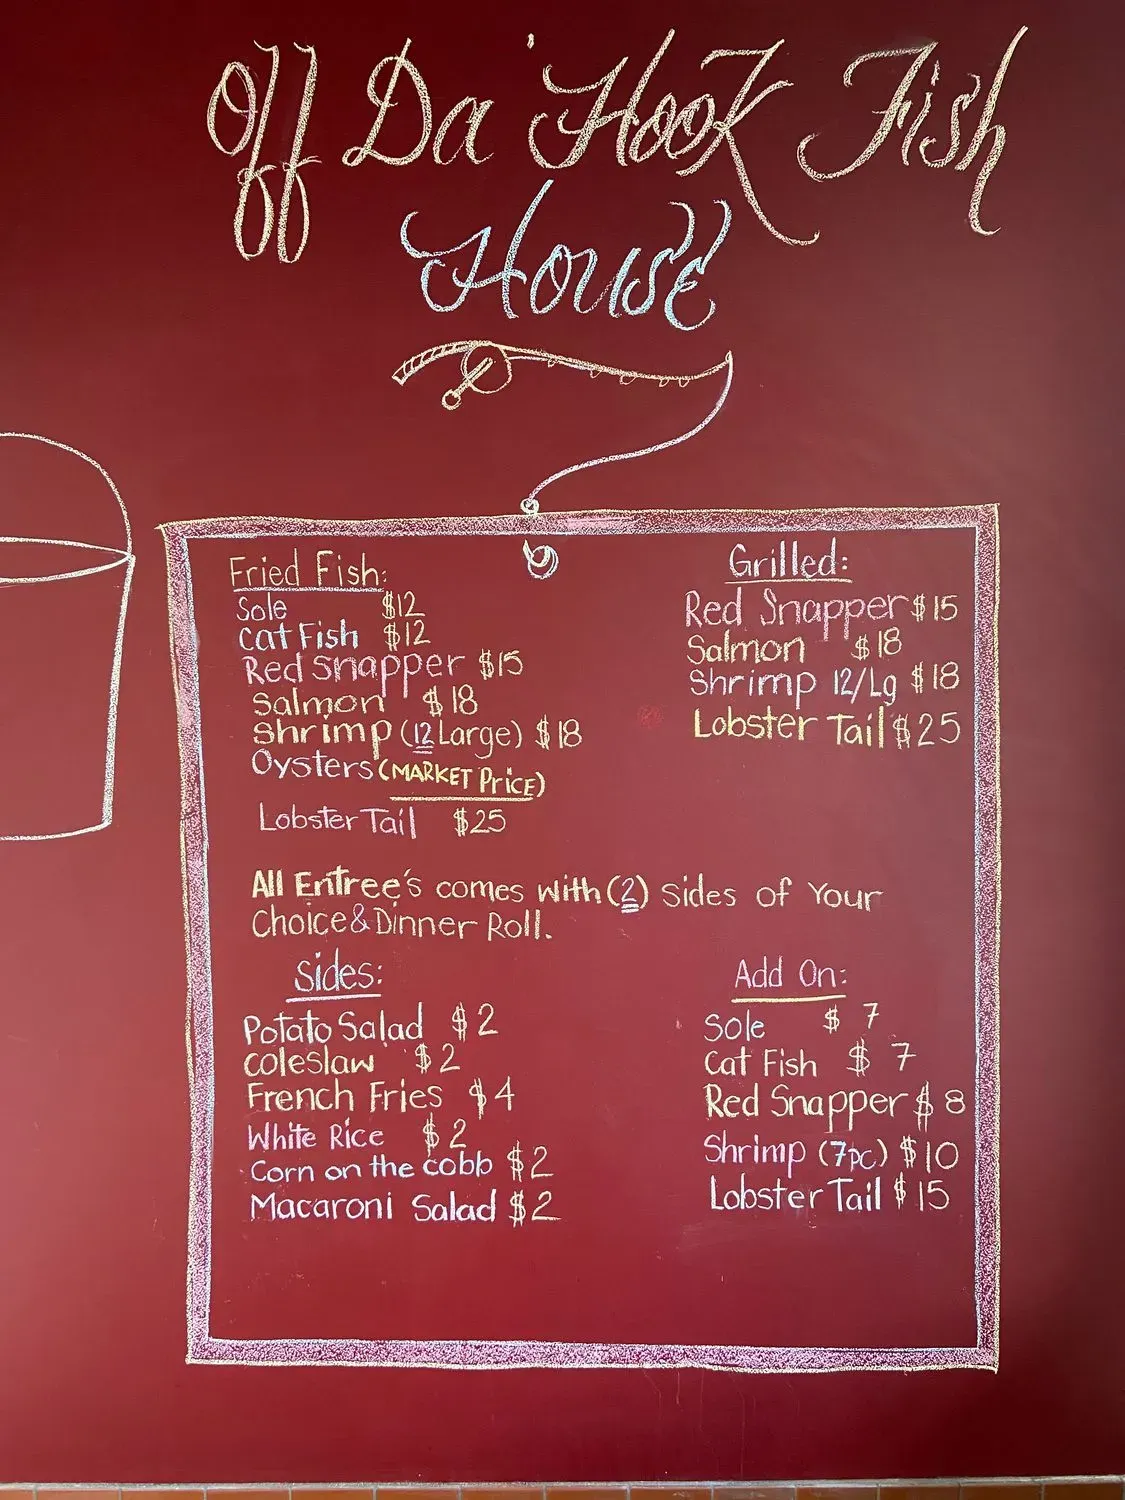 Off Da' Hook Fish
House
Fried Fish:
Sole $12
Cat Fish $12
Red Snapper $15
Salmon $18
Shrimp (12 Large) $18
Oysters (MARKET PricE)
Lobster Tail $25
Grilled:
Red Snapper $15
Salmon $18
Shrimp 12/Lg $18
Lobster Tail $25
All Entree's comes with (2) sides of Your
Choice & Dinner Roll.
Sides:
Potato Salad $2
Coleslaw $2
French Fries $4
White Rice $2
Corn on the cobb $2
Macaroni Salad $2
Add On:
Sole $7
Cat Fish $7
Red Snapper $8
Shrimp (7pc) $10
Lobster Tail $15